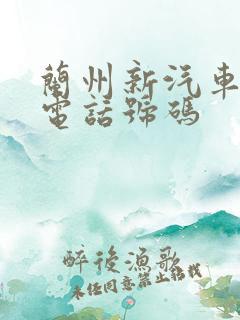 蘭州新汽車
電話號碼
醉後漁歌
未经同意禁止转载